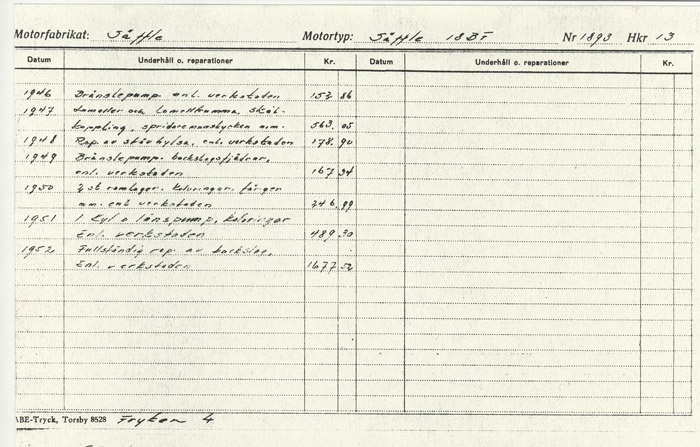 Motorfabrikat: Säffle Motortyp: Säffle 18BT Nr 1893 Hkr 13
Datum Underhåll o. reparationer Kr. Datum Underhåll o. reparationer Kr.
1946 Bränslepump. enl. verkstaden 153 86
1947 Lameller och Lamelltrumma, skål-
koppling, spridaremunstycken m.m. 563 05
1948 Rep. av stävhylsa, enl. verkstaden 178 90
1949 Bränslepump. backslagsfjädrar,
enl. verkstaden 167 34
1950 2 st ramlager. kolvringar. färger
m.m. enl verkstaden 346 89
1951 1 Cyl o länspump, kolvringar
Enl. verkstaden 489 30
1952 Fullständig rep. av backslag,
Enl. verkstaden 1677 52
ABE-Tryck, Torsby 8528 Fryken 4